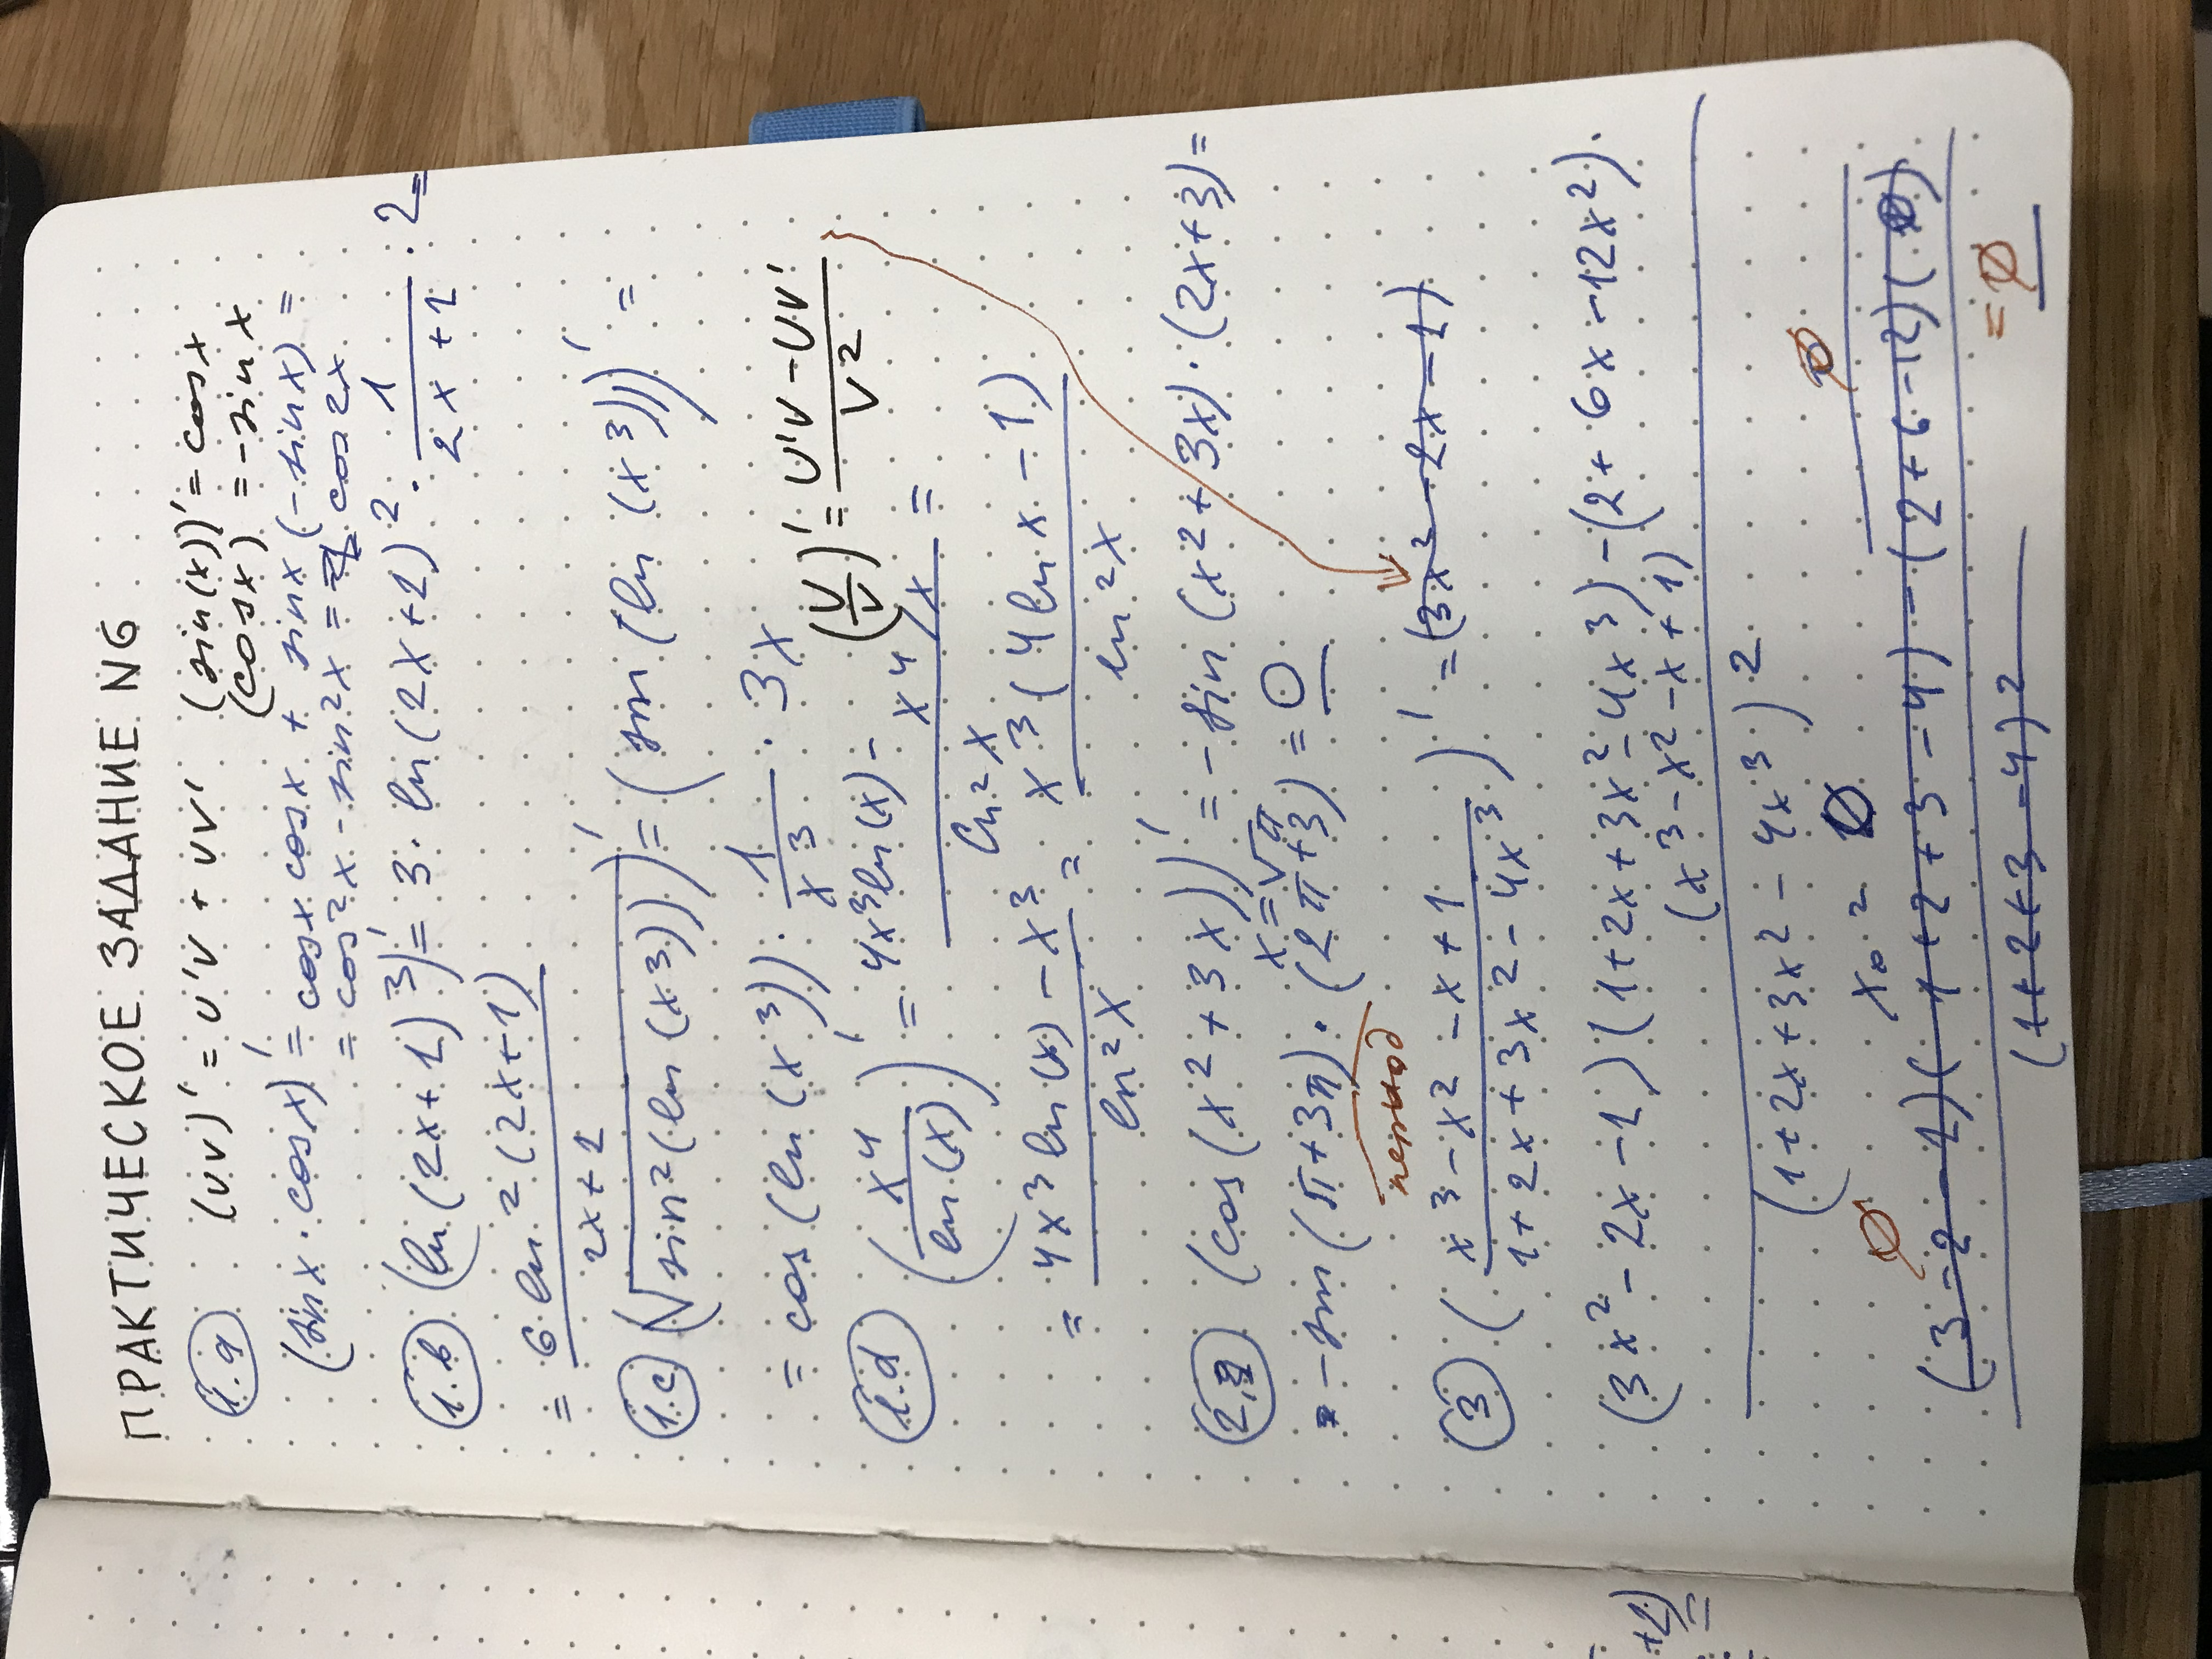 ПРАКТИЧЕСКОЕ ЗАДАНИЕ N6
1.a (UV)' = U'V + UV' (sin(x))' = cosx
(cosx) = -sinx
(sinx · cosx)' = cosx cosx + sinx (-sinx) =
= cos²x - sin²x = cos2x
1.b (ln(2x+1)³)' = 3 · ln(2x+1)² · 1/(2x+1) · 2 =
= 6 ln²(2x+1) / (2x+1)
1.c (√sin²(ln(x³)))' = (sin(ln(x³)))' =
= cos(ln(x³)) · 1/x³ · 3x
(U/V)' = (U'V - UV')/V²
1.d (x⁴/ln(x))' = (4x³ln(x) - x⁴/x)/ln²x =
= (4x³ln(x) - x³)/ln²x = x³(4lnx - 1)/ln²x
2. (cos(x²+3x))' = -sin(x²+3x)·(2x+3) =
x=√π
= -sin(π+3π)·(2π+3) = 0
период
3 ((x³-x²-x+1)/(1+2x+3x²-4x³))' = (3x²-2x-1)
(3x²-2x-1)(1+2x+3x²-4x³)-(2+6x-12x²)·
(x³-x²-x+1)
(1+2x+3x²-4x³)²
0 x₀ = 0 0
(3-2-1)(1+2+3-4)-(2+6-12)(0)
(1+2+3-4)² = 0
+2)
=